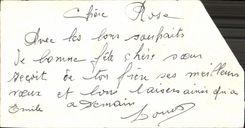 Chère Rosa
Avec les bons souhaits
de bonne fête chère sœur
reçoit de ton frère ses meilleurs
vœux et bons baisers ainsi qu'a
Emile a Demain
Louis